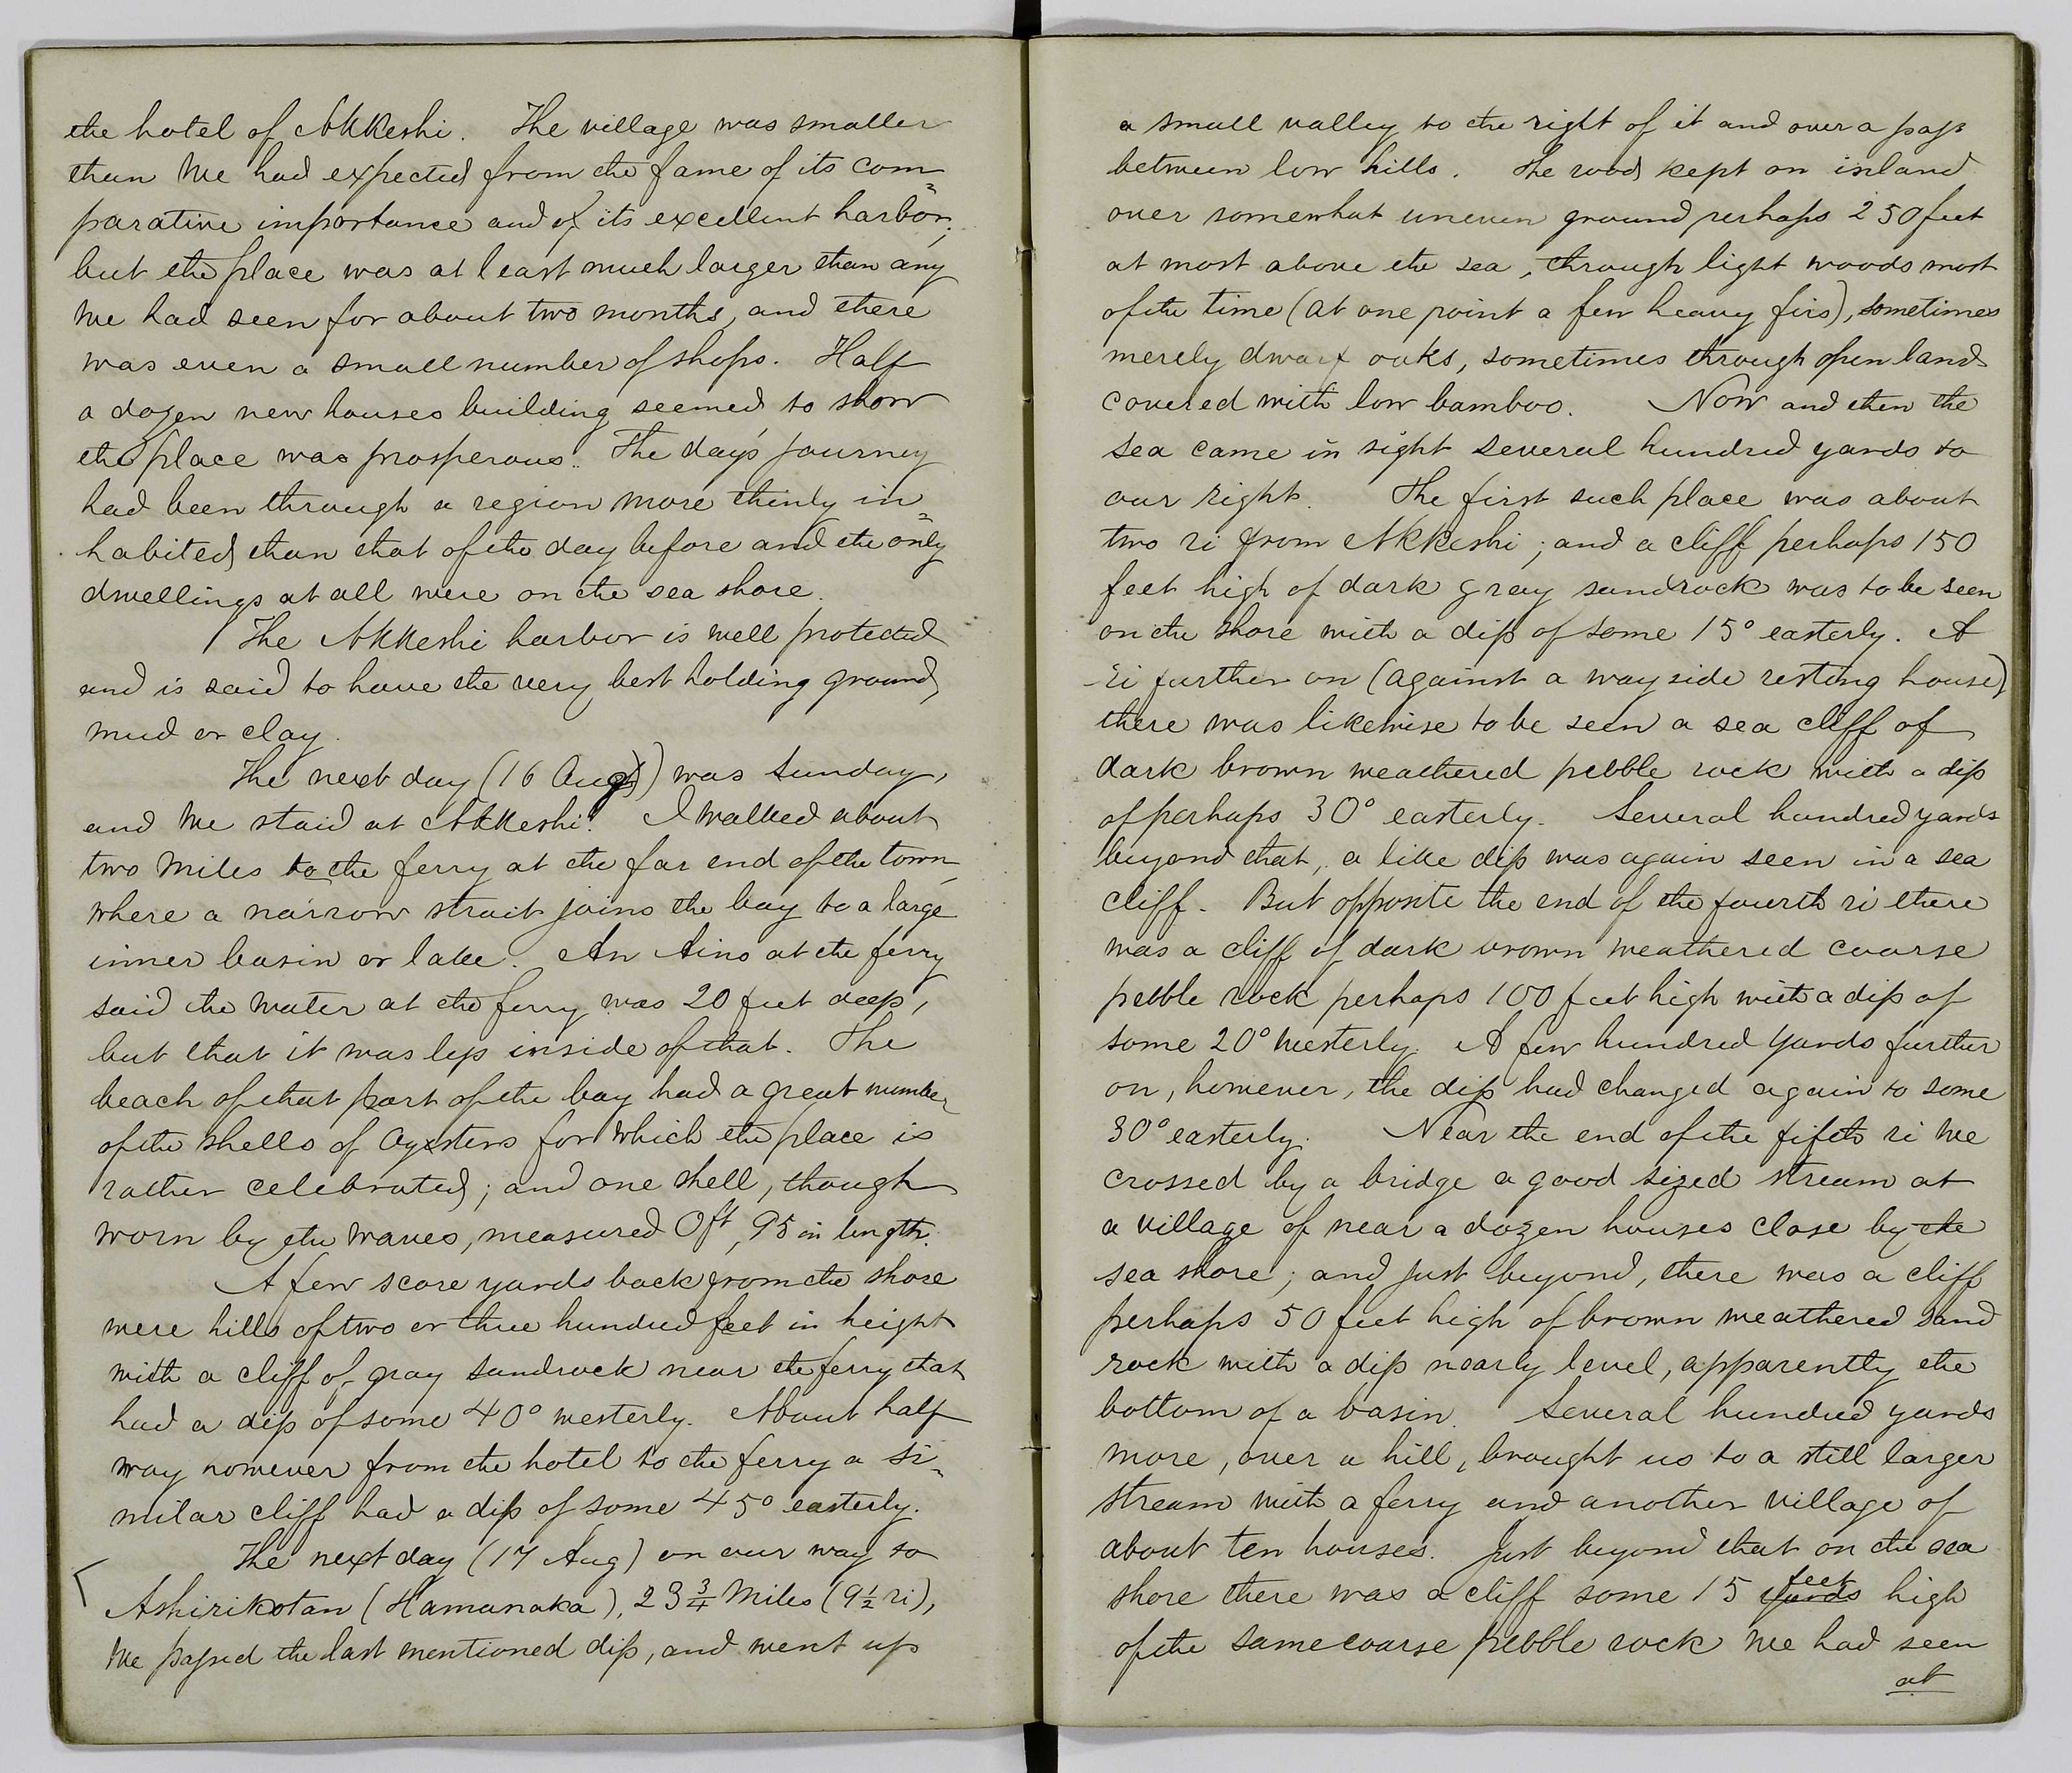 the hotel of Akkeshi. The village was smaller
than we had expected from the fame of its com=
parative importance and of its excellent harbor;
but the place was at least much larger than any
we had seen for about two months, and there
was even a small number of shops. Half
a dozen new houses building seemed to show
the place was prosperous. The day's journey
had been through a region more thinly in=
habited than that of the day before and the only
dwellings at all were on the sea shore.
The Akkeshi harbor is well protected
and is said to have the very best holding ground,
mud or clay.
The next day (16 Aug) was Sunday,
and we staid at Akkeshi. I walked about
two miles to the ferry at the far end of the town,
where a narrow strait joins the bay to a large
inner basin or lake. An Aino at the ferry
said the water at the ferry was 20 feet deep,
but that it was less inside of that. The
beach of that part of the bay had a great number
of the shells of oysters for which the place is
rather celebrated; and one shell, though
worn by the waves, measured 0ft, 95 in length.
A few score yards back from the shore
were hills of two or three hundred feet in height
with a cliff of gray sandrock near the ferry that
had a dip of some 40° westerly. About half
way however from the hotel to the ferry a si=
milar cliff had a dip of some 45° easterly.
The next day (17 Aug) on our way to
Ashirikotan (Hamanaka), 23 3/4 miles (9 1/2 ri),
we passed the last mentioned dip, and went up
a small valley to the right of it and over a pass
between low hills. The road kept on inland
over somewhat uneven ground perhaps 250 feet
at most above the sea, through light woods most
of the time (at one point a few heavy firs), sometimes
merely dwarf oaks, sometimes through open land
covered with low bamboo. Now and then the
sea came in sight several hundred yards to
our right. The first such place was about
two ri from Akkeshi; and a cliff perhaps 150
feet high of dark gray sandrock was to be seen
on the shore with a dip of some 15° easterly. A
ri further on (against a wayside resting house)
there was likewise to be seen a sea cliff of
dark brown weathered pebble rock with a dip
of perhaps 30° easterly. Several hundred yards
beyond that, a like dip was again seen in a sea
cliff. But opposite the end of the fourth ri there
was a cliff of dark brown weathered coarse
pebble rock perhaps 100 feet high with a dip of
some 20° westerly. A few hundred yards further
on, however, the dip had changed again to some
30° easterly. Near the end of the fifth ri we
crossed by a bridge a good sized stream at
a village of near a dozen houses close by the
sea shore; and just beyond, there was a cliff
perhaps 50 feet high of brown weathered sand
rock with a dip nearly level, apparently the
bottom of a basin. Several hundred yards
more, over a hill, brought us to a still larger
stream with a ferry and another village of
about ten houses. Just beyond that on the sea
shore there was a cliff some 15 yards feet high
of the same coarse pebble rock we had seen
at